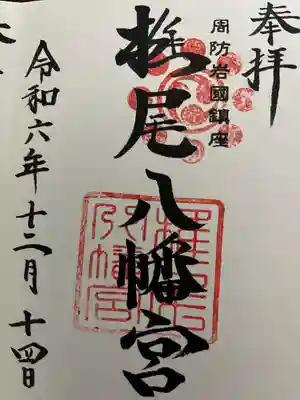 奉拝
周防岩國鎮座
椎尾八幡宮
令和六年十二月十四日
椎尾
八幡宮